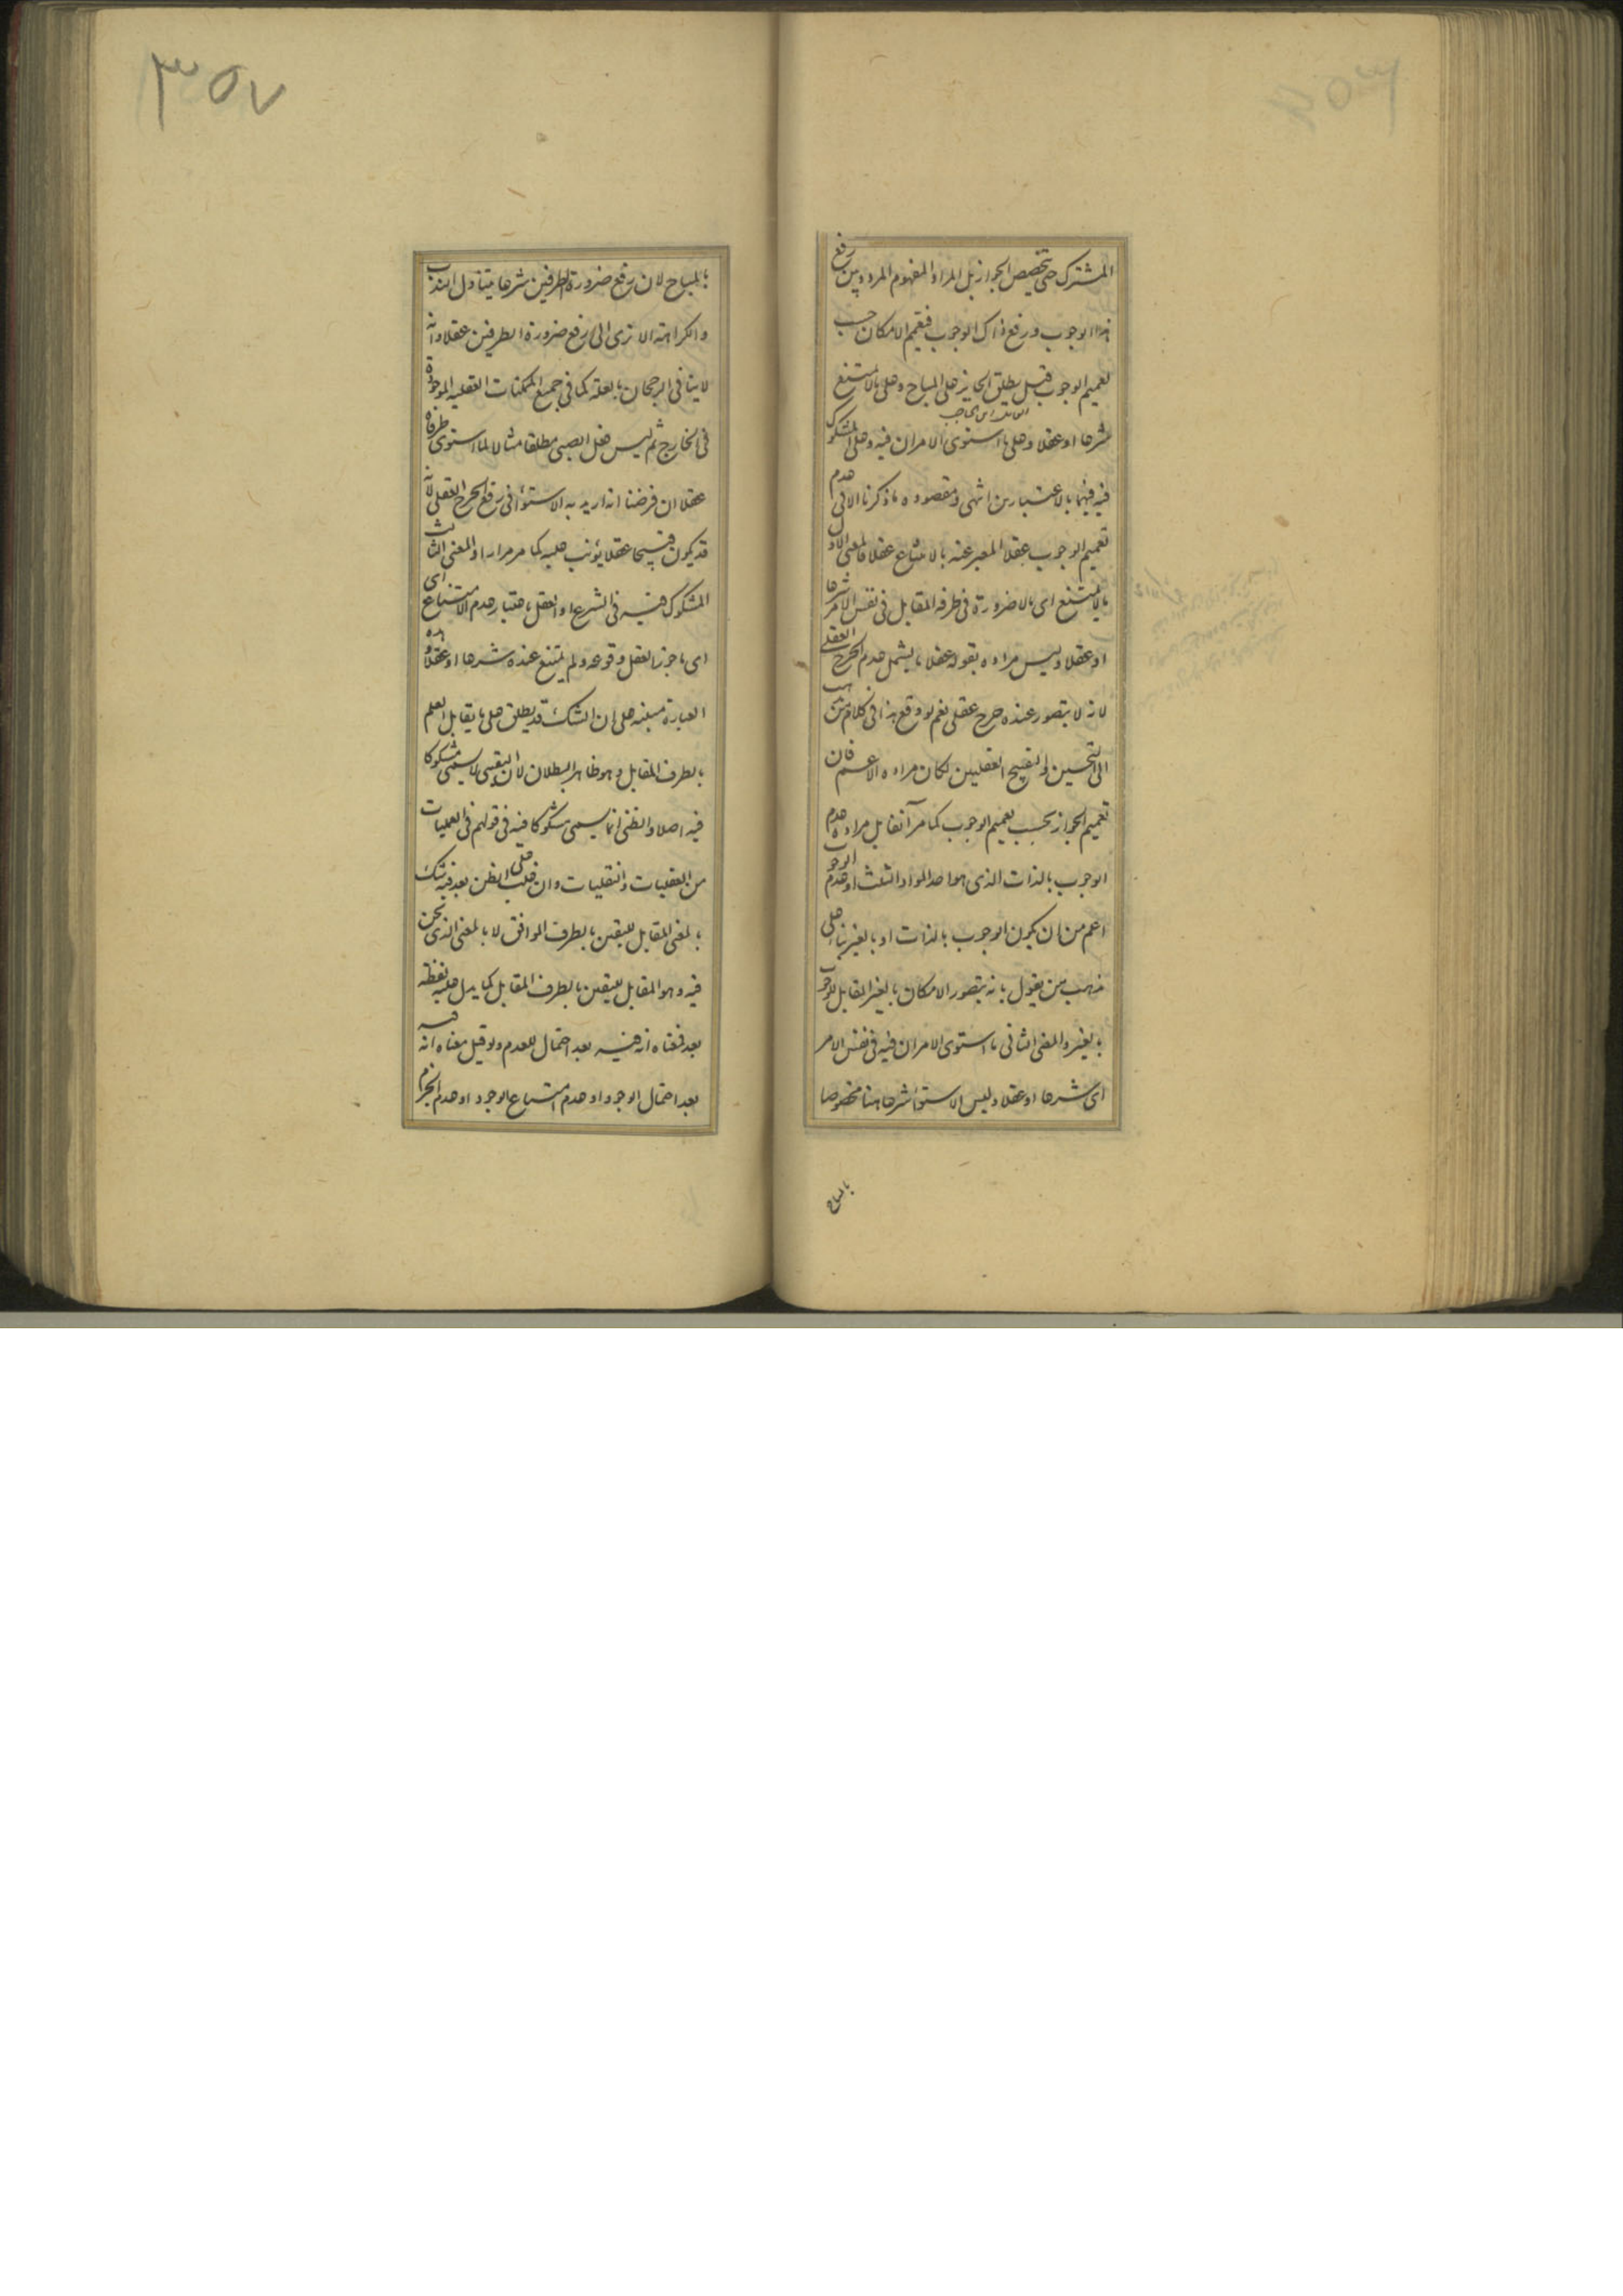 المشترك حتى تخصيص الجواز بل المراد المفهوم المردد بين رفع
هذا الوجوب ورفع ذاك الوجوب فتعميم الامكان حسب
تعميم الوجوب قيل يطلق الجايز على المباح وعلى ما لا يمتنع
شرعا او عقلا وعلى ما استوى الامران فيه وعلى المشكوك
فيه فيهما بالاعتبارين انتهى ومقصوده ما ذكرنا الا في عدم
تعميم الوجوب عقلا المعبر عنه بالامتناع عقلا فالمعنى الاول
ما لا يمتنع اى ما لا ضرورة فى طرفه المقابل فى نفس الامر شرعا
او عقلا وليس مراده بقوله عقلا ما يشمل عدم الحرج العقلى
لانه لا يتصور عنده حرج عقلى نعم لو وقع هذا فى كلام من ذهب
الى التحسين والتقبيح العقليين لكان مراده الاعم فان
تعميم الجواز بحسب تعميم الوجوب كما مر آنفا بل مراده عدم
الوجوب بالذات الذى هو احد المواد الثلث او عدم الوجوب
اعم من ان يكون الوجوب بالذات او بالغير بناء على
مذهب من يقول بانه يتصور الامكان بالغير المقابل للوجوب
بالغير والمعنى الثانى ما استوى الامران فيه فى نفس الامر
اى شرعا او عقلا وليس الاستوا شرعا هنا مخصوصا
بالمباح
٣٥٧
بالمباح لان رفع ضرورة الطرفين شرعا يتناول الندب
والكراهة الا ترى الى رفع ضرورة الطرفين عقلا وانه
لا ينافى الرجحان بالعلة كما فى جميع الممكنات العقليه الموجودة
فى الخارج ثم ليس فعل الصبى مطلقا مثالا لما استوى طرفاه
عقلا ان فرضنا انه اريد به الاستواء فى رفع الحرج العقلى لانه
قد يكون قبيحا عقلا يؤنب عليه كما مر مرارا والمعنى الثالث
المشكوك فيه فى الشرع او العقل باعتبار عدم الامتناع اى
اى ما جوز العقل وقوعه ولم يمتنع عنده شرعا او عقلا وهذه
العبارة مبنية على ان الشك قد يطلق على ما يقابل العلم
بالطرف المقابل وهو ظاهر البطلان لان اليقينى لا يسمى مشكوكا
فيه اصلا والظنى انما يسمى مشكوكا فيه فى قولهم فى العمليات
من العقليات والنقليات وان غلب على الظن بعد فيه شك
بالمعنى المقابل لليقين بالطرف الموافق لا بالمعنى الذى نحن
فيه وهو المقابل لليقين بالطرف المقابل كما يدل عليه لفظة
بعد فمعناه انه فيه بعد احتمال للعدم ولو قيل معناه انه فيه
بعد احتمال الوجود او عدم امتناع الوجود او عدم الجزم